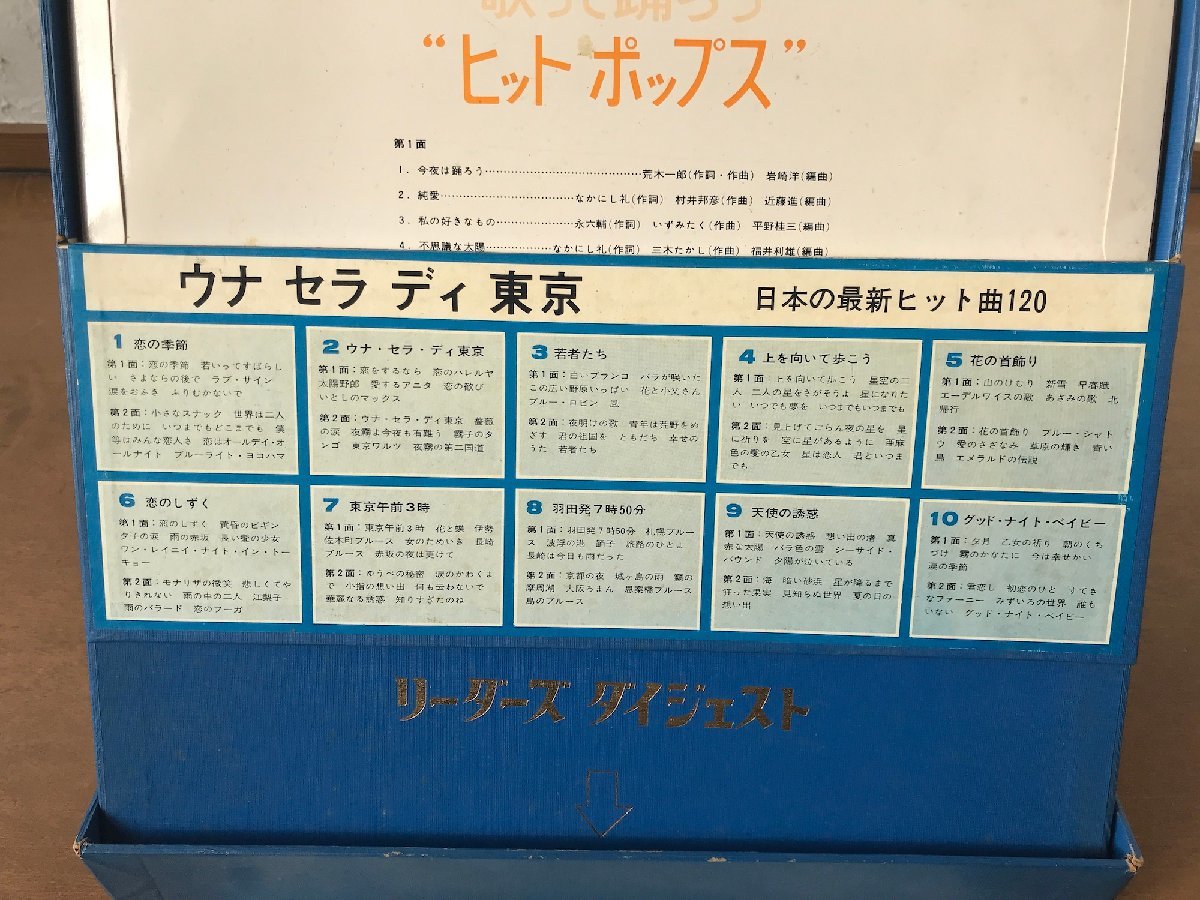 歌って踊ろう
“ヒット ポップス”
第1面
1. 今夜は踊ろう……荒木一郎(作詞・作曲) 岩崎洋(編曲)
2. 純愛……なかにし礼(作詞) 村井邦彦(作曲) 近藤進(編曲)
3. 私の好きなもの……永六輔(作詞) いずみたく(作曲) 平野桂三(編曲)
4. 不思議な太陽……なかにし礼(作詞) 三木たかし(作曲) 福井利雄(編曲)
ウナ セラ ディ 東京 日本の最新ヒット曲120
1 恋の季節
第1面:恋の季節 若いってすばらし
い さよならの後で ラブ・サイン
涙をおふき ふりむかないで
第2面:小さなスナック 世界は二人
のために いつまでもどこまでも 僕
等はみんな恋人さ 恋はオールデイ・オ
ールナイト ブルーライト・ヨコハマ
2 ウナ・セラ・ディ東京
第1面:恋をするなら 恋のハレルヤ
太陽野郎 愛するアニタ 恋の歓び
いとしのマックス
第2面:ウナ・セラ・ディ東京 薔薇
の涙 夜霧よ今夜も有難う 霧子のタ
ンゴ 東京ワルツ 夜霧の第二国道
3 若者たち
第1面:白いブランコ バラが咲いた
この広い野原いっぱい 花と小父さん
ブルー・ロビン 風
第2面:夜明けの歌 青年は荒野をめ
ざす 君の祖国を ともだち 幸せの
うた 若者たち
4 上を向いて歩こう
第1面:上を向いて歩こう 星空の二
人 二人の星をさがそうよ 星になりた
い いつでも夢を いつまでもいつまでも
第2面:見上げてごらん夜の星を 星
に祈りを 空に星があるように 亜麻
色の髪の乙女 星は恋人 君といつま
でも
5 花の首飾り
第1面:山のけむり 新雪 早春賦
エーデルワイスの歌 あざみの歌 北
帰行
第2面:花の首飾り ブルー・シャト
ウ 愛のさざなみ 草原の輝き 青い
鳥 エメラルドの伝説
6 恋のしずく
第1面:恋のしずく 黄昏のビギン
夕子の涙 雨の赤坂 長い髪の少女
ワン・レイニイ・ナイト・イン・トー
キョー
第2面:モナリザの微笑 悲しくてや
りきれない 雨の中の二人 江梨子
雨のバラード 恋のフーガ
7 東京午前3時
第1面:東京午前3時 花と蝶 伊勢
佐木町ブルース 女のためいき 長崎
ブルース 赤坂の夜は更けて
第2面:ゆうべの秘密 涙のかわくま
で 小指の想い出 何も云わないで
華麗なる誘惑 知りすぎたのね
8 羽田発7時50分
第1面:羽田発7時50分 札幌ブルー
ス 波浮の港 銀子 旅路のひとよ
長崎は今日も雨だった
第2面:京都の夜 城ヶ島の雨 霧の
摩周湖 大阪ろまん 思案橋ブルース
島のブルース
9 天使の誘惑
第1面:天使の誘惑 想い出の渚 真
赤な太陽 バラ色の雲 シーサイド・
バウンド 夕陽が泣いている
第2面:海 暗い砂浜 星が降るまで
狂った果実 見知らぬ世界 夏の日の
想い出
10 グッド・ナイト・ベイビー
第1面:夕月 乙女の祈り 朝のくち
づけ 霧のかなたに 今は幸せかい
涙の季節
第2面:君恋し 初恋のひと すてき
なファーニー みずいろの世界 誰も
いない グッド・ナイト・ベイビー
リーダーズ ダイジェスト